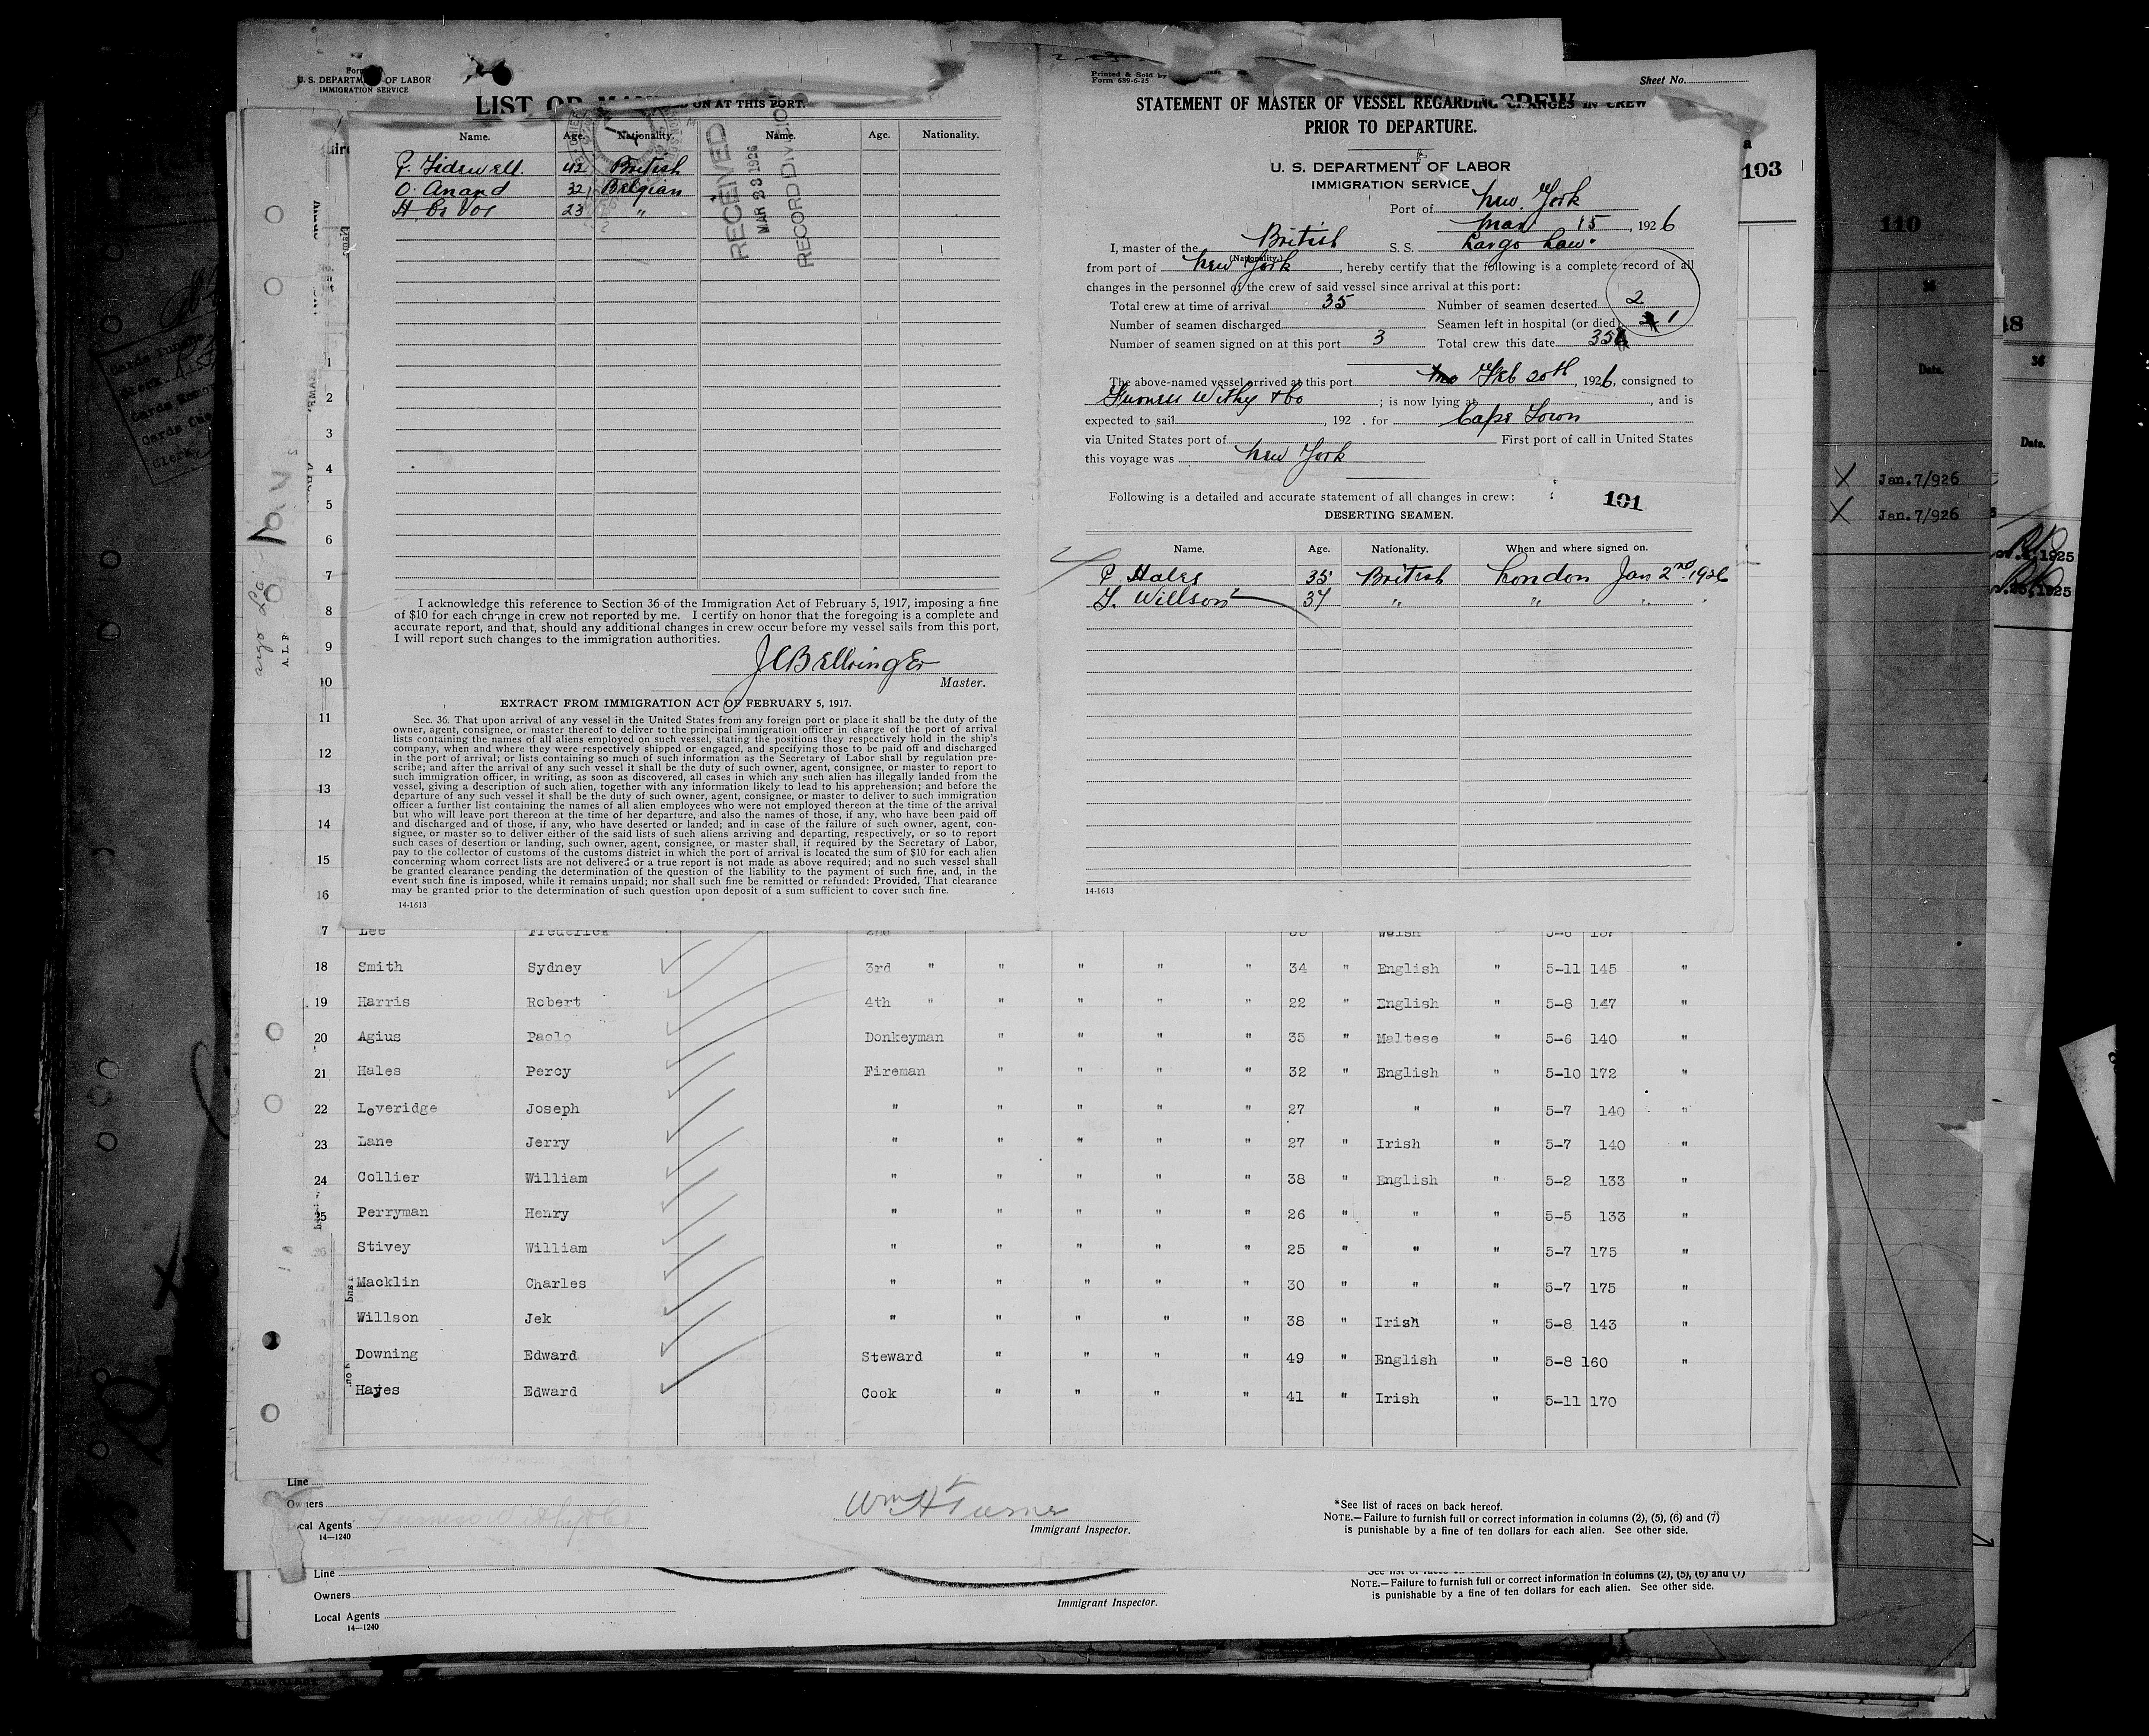 Form
U. S. DEPARTMENT OF LABOR
IMMIGRATION SERVICE
LIST OR
ON AT THIS PORT.
Name. Age. Nationality. Name. Age. Nationality.
42 British
O. Anand 32 Belgian
H. De Vos 23 "
RECEIVED
MAR 23 1926
RECORD DIVISION
I acknowledge this reference to Section 36 of the Immigration Act of February 5, 1917, imposing a fine
of $10 for each change in crew not reported by me. I certify on honor that the foregoing is a complete and
accurate report, and that, should any additional changes in crew occur before my vessel sails from this port,
I will report such changes to the immigration authorities.
Master.
EXTRACT FROM IMMIGRATION ACT OF FEBRUARY 5, 1917.
Sec. 36. That upon arrival of any vessel in the United States from any foreign port or place it shall be the duty of the
owner, agent, consignee, or master thereof to deliver to the principal immigration officer in charge of the port of arrival
lists containing the names of all aliens employed on such vessel, stating the positions they respectively hold in the ship's
company, when and where they were respectively shipped or engaged, and specifying those to be paid off and discharged
in the port of arrival; or lists containing so much of such information as the Secretary of Labor shall by regulation pre-
scribe; and after the arrival of any such vessel it shall be the duty of such owner, agent, consignee, or master to report to
such immigration officer, in writing, as soon as discovered, all cases in which any such alien has illegally landed from the
vessel, giving a description of such alien, together with any information likely to lead to his apprehension; and before the
departure of any such vessel it shall be the duty of such owner, agent, consignee, or master to deliver to such immigration
officer a further list containing the names of all alien employees who were not employed thereon at the time of the arrival
but who will leave port thereon at the time of her departure, and also the names of those, if any, who have been paid off
and discharged and of those, if any, who have deserted or landed; and in case of the failure of such owner, agent, con-
signee, or master so to deliver either of the said lists of such aliens arriving and departing, respectively, or so to report
such cases of desertion or landing, such owner, agent, consignee, or master shall, if required by the Secretary of Labor,
pay to the collector of customs of the customs district in which the port of arrival is located the sum of $10 for each alien
concerning whom correct lists are not delivered or a true report is not made as above required; and no such vessel shall
be granted clearance pending the determination of the question of the liability to the payment of such fine, and, in the
event such fine is imposed, while it remains unpaid; nor shall such fine be remitted or refunded: Provided, That clearance
may be granted prior to the determination of such question upon deposit of a sum sufficient to cover such fine.
14-1613
Printed & Sold by
Form 689-6-25
Sheet No.
CREW
STATEMENT OF MASTER OF VESSEL REGARDING CHANGES IN CREW
PRIOR TO DEPARTURE.
U. S. DEPARTMENT OF LABOR
IMMIGRATION SERVICE
Port of New York
Mar 15, 1926
I, master of the British S. S. Largo Law.
(Nationality.)
from port of New York, hereby certify that the following is a complete record of all
changes in the personnel of the crew of said vessel since arrival at this port:
Total crew at time of arrival 35 Number of seamen deserted 2
Number of seamen discharged Seamen left in hospital (or died) 1
Number of seamen signed on at this port 3 Total crew this date 35
The above-named vessel arrived at this port Feb 20th, 1926, consigned to
Furness Withy & Co; is now lying at, and is
expected to sail, 192 . for Cape Town
via United States port of First port of call in United States
this voyage was New York
Following is a detailed and accurate statement of all changes in crew:
101
DESERTING SEAMEN.
Name. Age. Nationality. When and where signed on.
P Hales 35 British London Jan 2nd 1926
J. Willson 37 " " " "
14-1613
103
110
Date.
X Jan.7/926
X Jan.7/926
18
36
Date.
1925
1925
1
2
3
4
5
6
7
8
9
10
11
12
13
14
15
16
7 Lee Frederick 2nd " Welsh
18 Smith Sydney 3rd " " " " " 34 " English " 5-11 145 "
19 Harris Robert 4th " " " " " 22 " English " 5-8 147 "
20 Agius Paolo Donkeyman " " " " 35 " Maltese " 5-6 140 "
21 Hales Percy Fireman " " " " 32 " English " 5-10 172 "
22 Loveridge Joseph " " " " " 27 " " 5-7 140 "
23 Lane Jerry " " " " " 27 " Irish " 5-7 140 "
24 Collier William " " " " " 38 " English " 5-2 133 "
25 Perryman Henry " " " " " 26 " " " 5-5 133 "
Stivey William " " " " " 25 " " " 5-7 175 "
Macklin Charles " " " " " 30 " " " 5-7 175 "
Willson Jek " " " " " 38 " Irish " 5-8 143 "
Downing Edward Steward " " " " 49 " English " 5-8 160 "
Hayes Edward Cook " " " " 41 " Irish " 5-11 170
Line
Owners
Local Agents Furness Withy & Co
14—1240
Wm H Turner
Immigrant Inspector.
*See list of races on back hereof.
NOTE.—Failure to furnish full or correct information in columns (2), (5), (6) and (7)
is punishable by a fine of ten dollars for each alien. See other side.
Line
Owners
Local Agents
14—1240
Immigrant Inspector.
NOTE.—Failure to furnish full or correct information in columns (2), (5), (6) and (7)
is punishable by a fine of ten dollars for each alien. See other side.